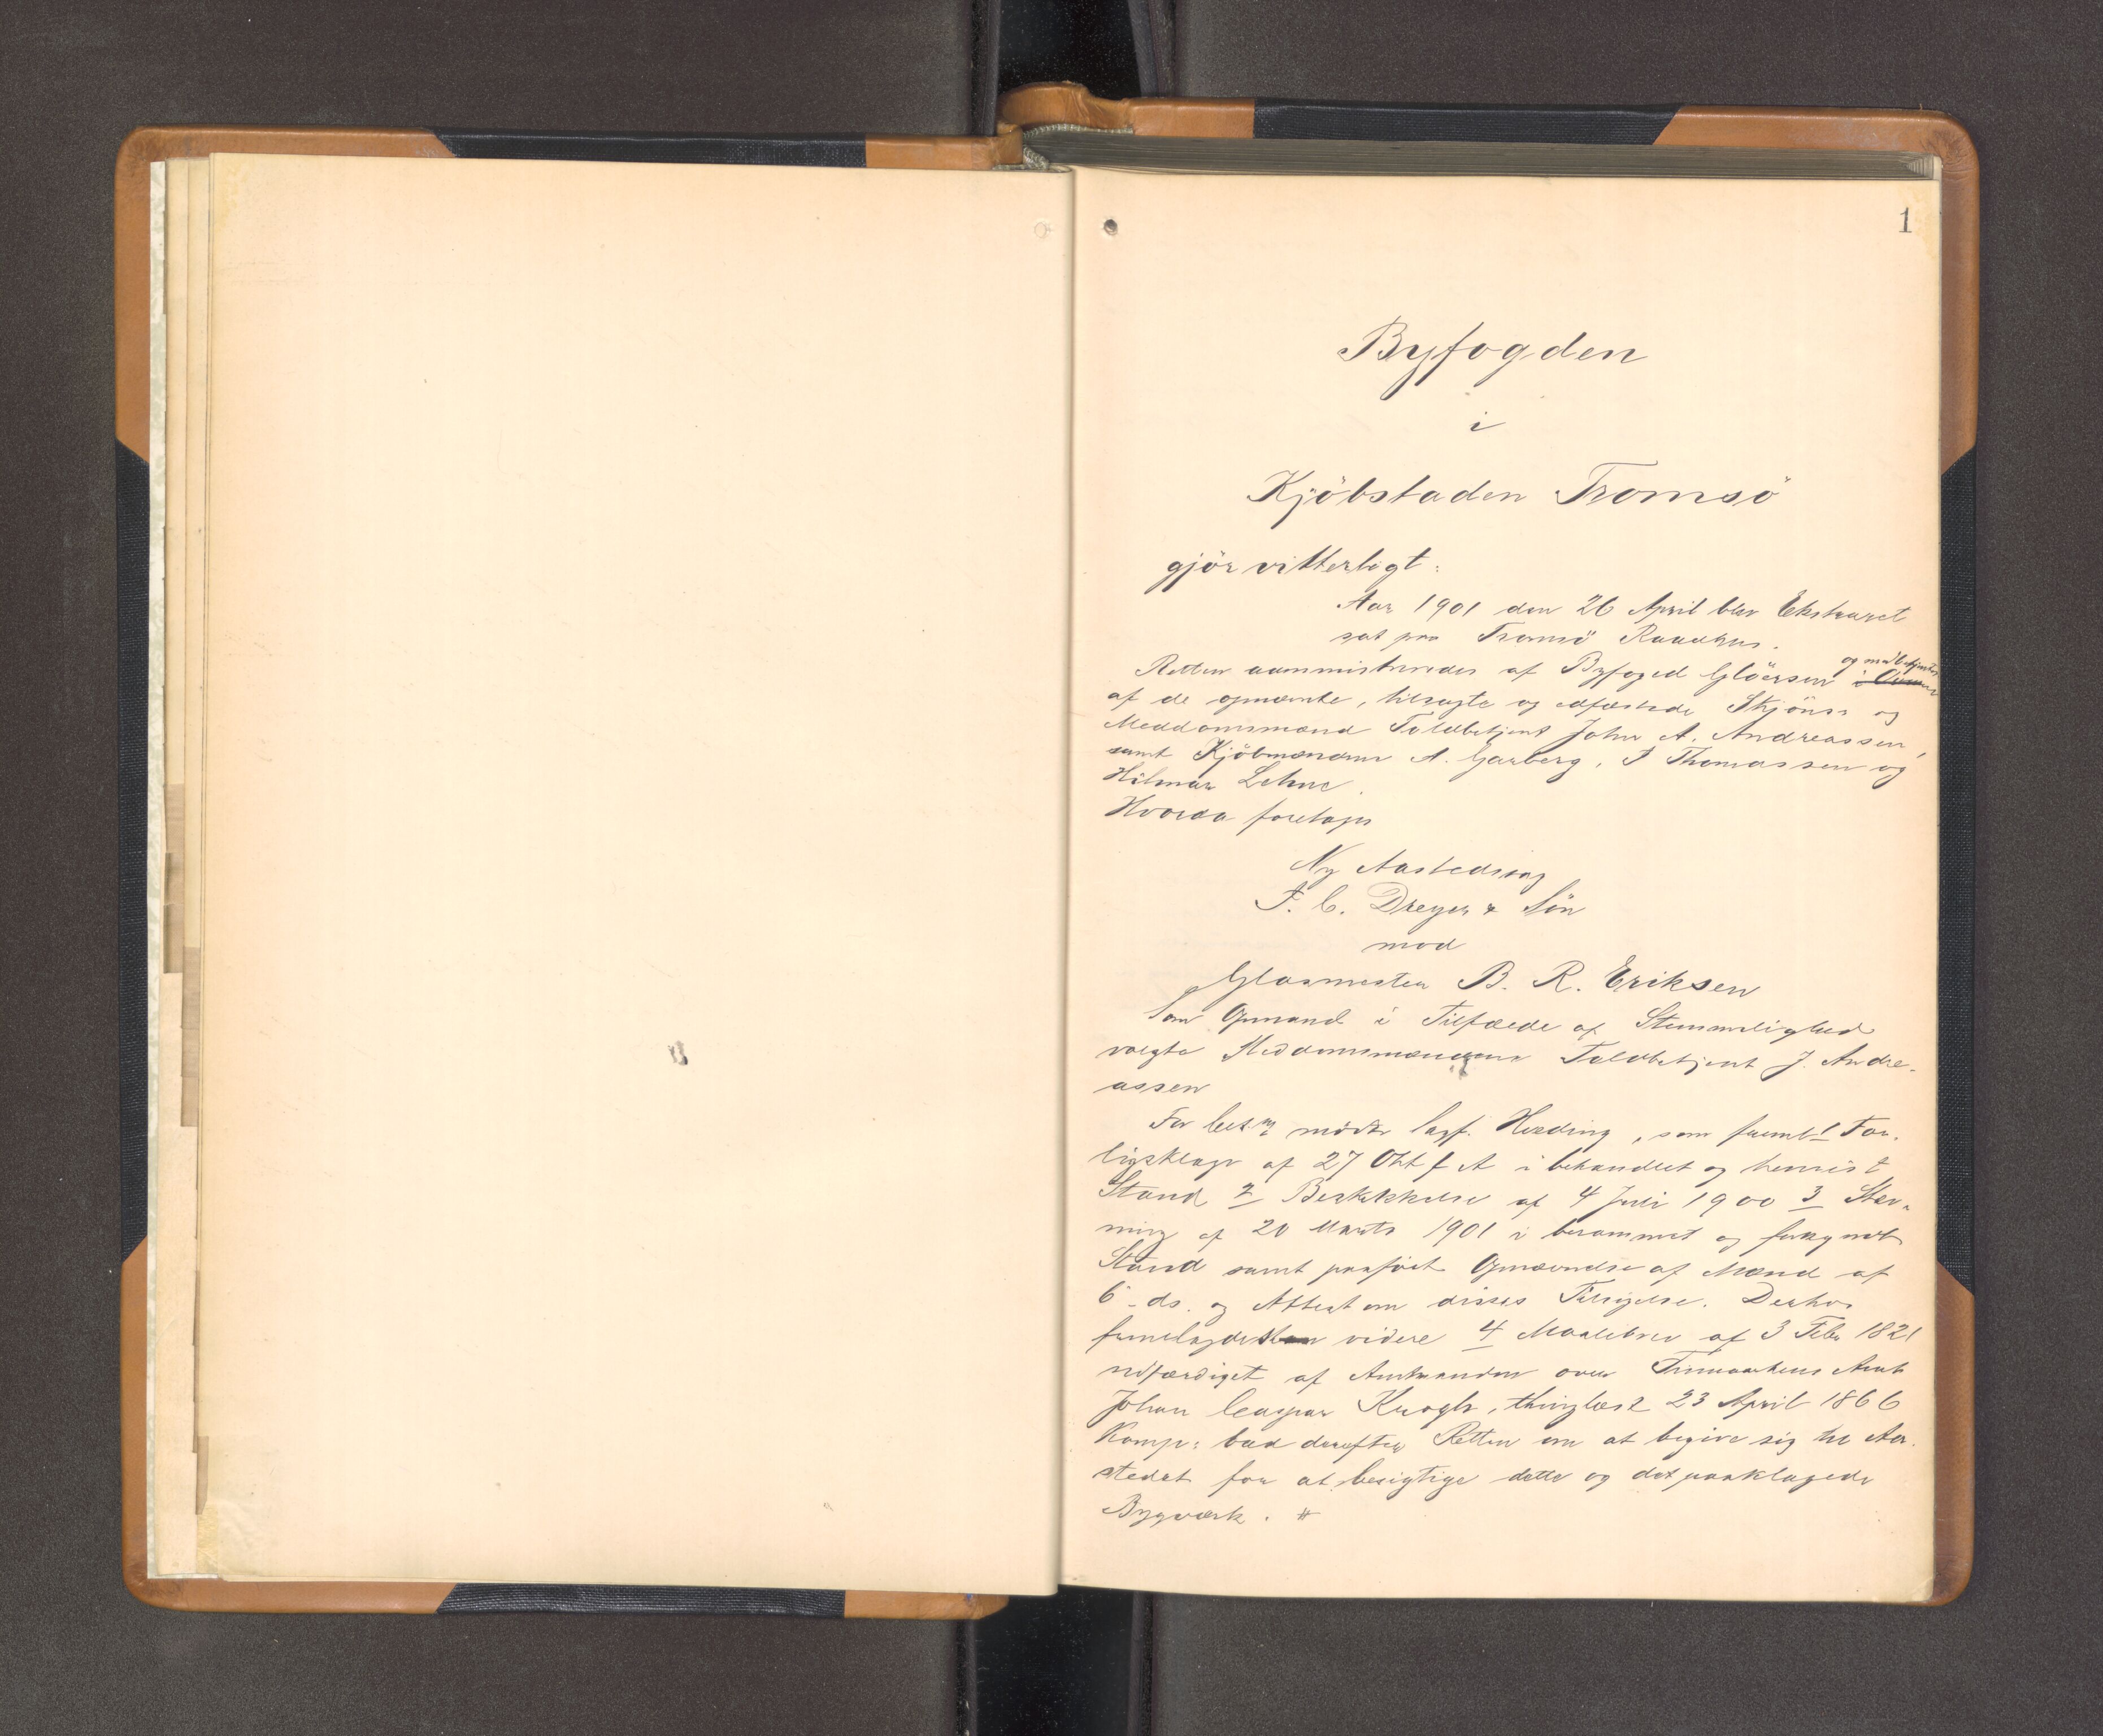 1
Byfogden
i
Kjöbstaden Tromsö
gjör vitterligt:
Aar 1901 den 26 April blev Ekstraret
sat paa Tromsö Raadhus.
Retten administreredes af Byfoged Gløersen og medbetjentes
af de opnævnte, tilsagte og edfæstede Skjöns- og
Meddomsmænd Toldbetjent John A. Andreassen,
samt Kjöbmændene A. Garberg, J Thomassen og
Hilmar Lehne.
Hvorda foretoges
Ny Aastedssag
F. C. Dreyer & Sön
mod
Glasmester B. R. Eriksen
Som Opmand i Tilfælde af Stemmelighed
valgte Meddomsmændene Toldbetjent J. Andre-
assen
For Cit. mødte Sagf. Herding, som freml. 1 For-
ligsklage af 27 Okt f A i behandlet og henvist
Stand 2 Beskikkelse af 4 Juli 1900 3 Stev-
ning af 20 Marts 1901 i berammet og forkyndt
Stand samt paaført Opnævnelse af Mænd af
6 ds. og Attest om disses Tilsigelse. Derhos
fremlagdes videre 4 Maalebrev af 3 Febr 1821
udfærdiget af Amtmanden over Finmarkens Amt
Johan Caspar Krogh, thinglæst 23 April 1866
Komp: bad derefter Retten om at begive sig til Aa-
stedet for at besigtige dette og det paaklagede
Bygværk. #